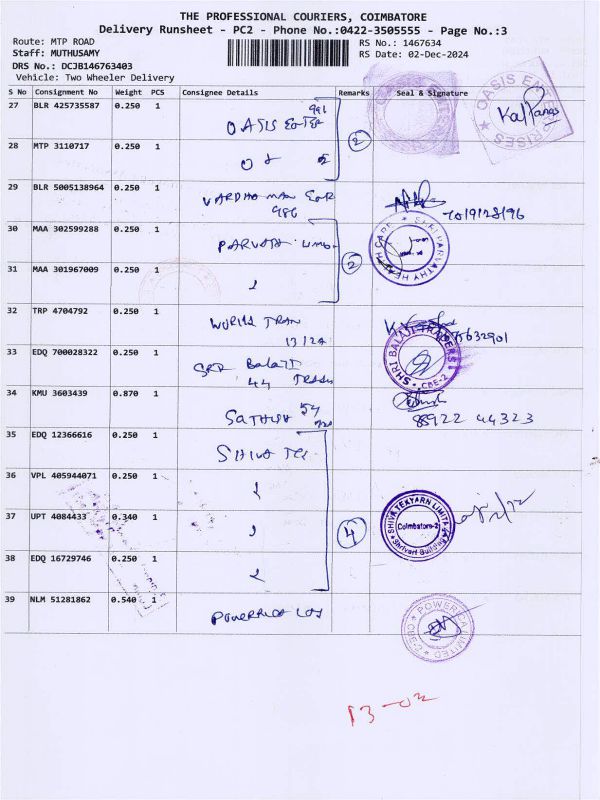 THE PROFESSIONAL COURIERS, COIMBATORE
Delivery Runsheet - PC2 - Phone No.:0422-3505555 - Page No.:3
Route: MTP ROAD
RS No.: 1467634
Staff: MUTHUSAMY
RS Date: 02-Dec-2024
DRS No.: DCJB146763403
Vehicle: Two Wheeler Delivery
S No Consignment No Weight PCS Consignee Details Remarks Seal & Signature
27 BLR 425735587 0.250 1 991
OASIS ENTER
OASIS ENTERPRISES
Kalpanas
28 MTP 3110717 0.250 1
2
29 BLR 5005138964 0.250 1 VARDHAMAN
986
7019128196
30 MAA 302599288 0.250 1 PARVATHI
SHRI PARVATHY HEALTH CARE
2
31 MAA 301967009 0.250 1
32 TRP 4704792 0.250 1 WORLD TRAN
33 EDQ 700028322 0.250 1 SRR Balaji
44 TRADE
SHRI BALAJI TRADERS CBE-2
34 KMU 3603439 0.870 1 SATHISH 54
88922 44323
35 EDQ 12366616 0.250 1 SHIVA TEX
36 VPL 405944071 0.250 1
37 UPT 4084433 0.340 1
4
SHIVA TEXYARN LIMITED
Coimbatore-2
Shrivari Building
38 EDQ 16729746 0.250 1
39 NLM 51281862 0.540 1 POWERICA LTD
POWERICA LIMITED CBE-2
13-02